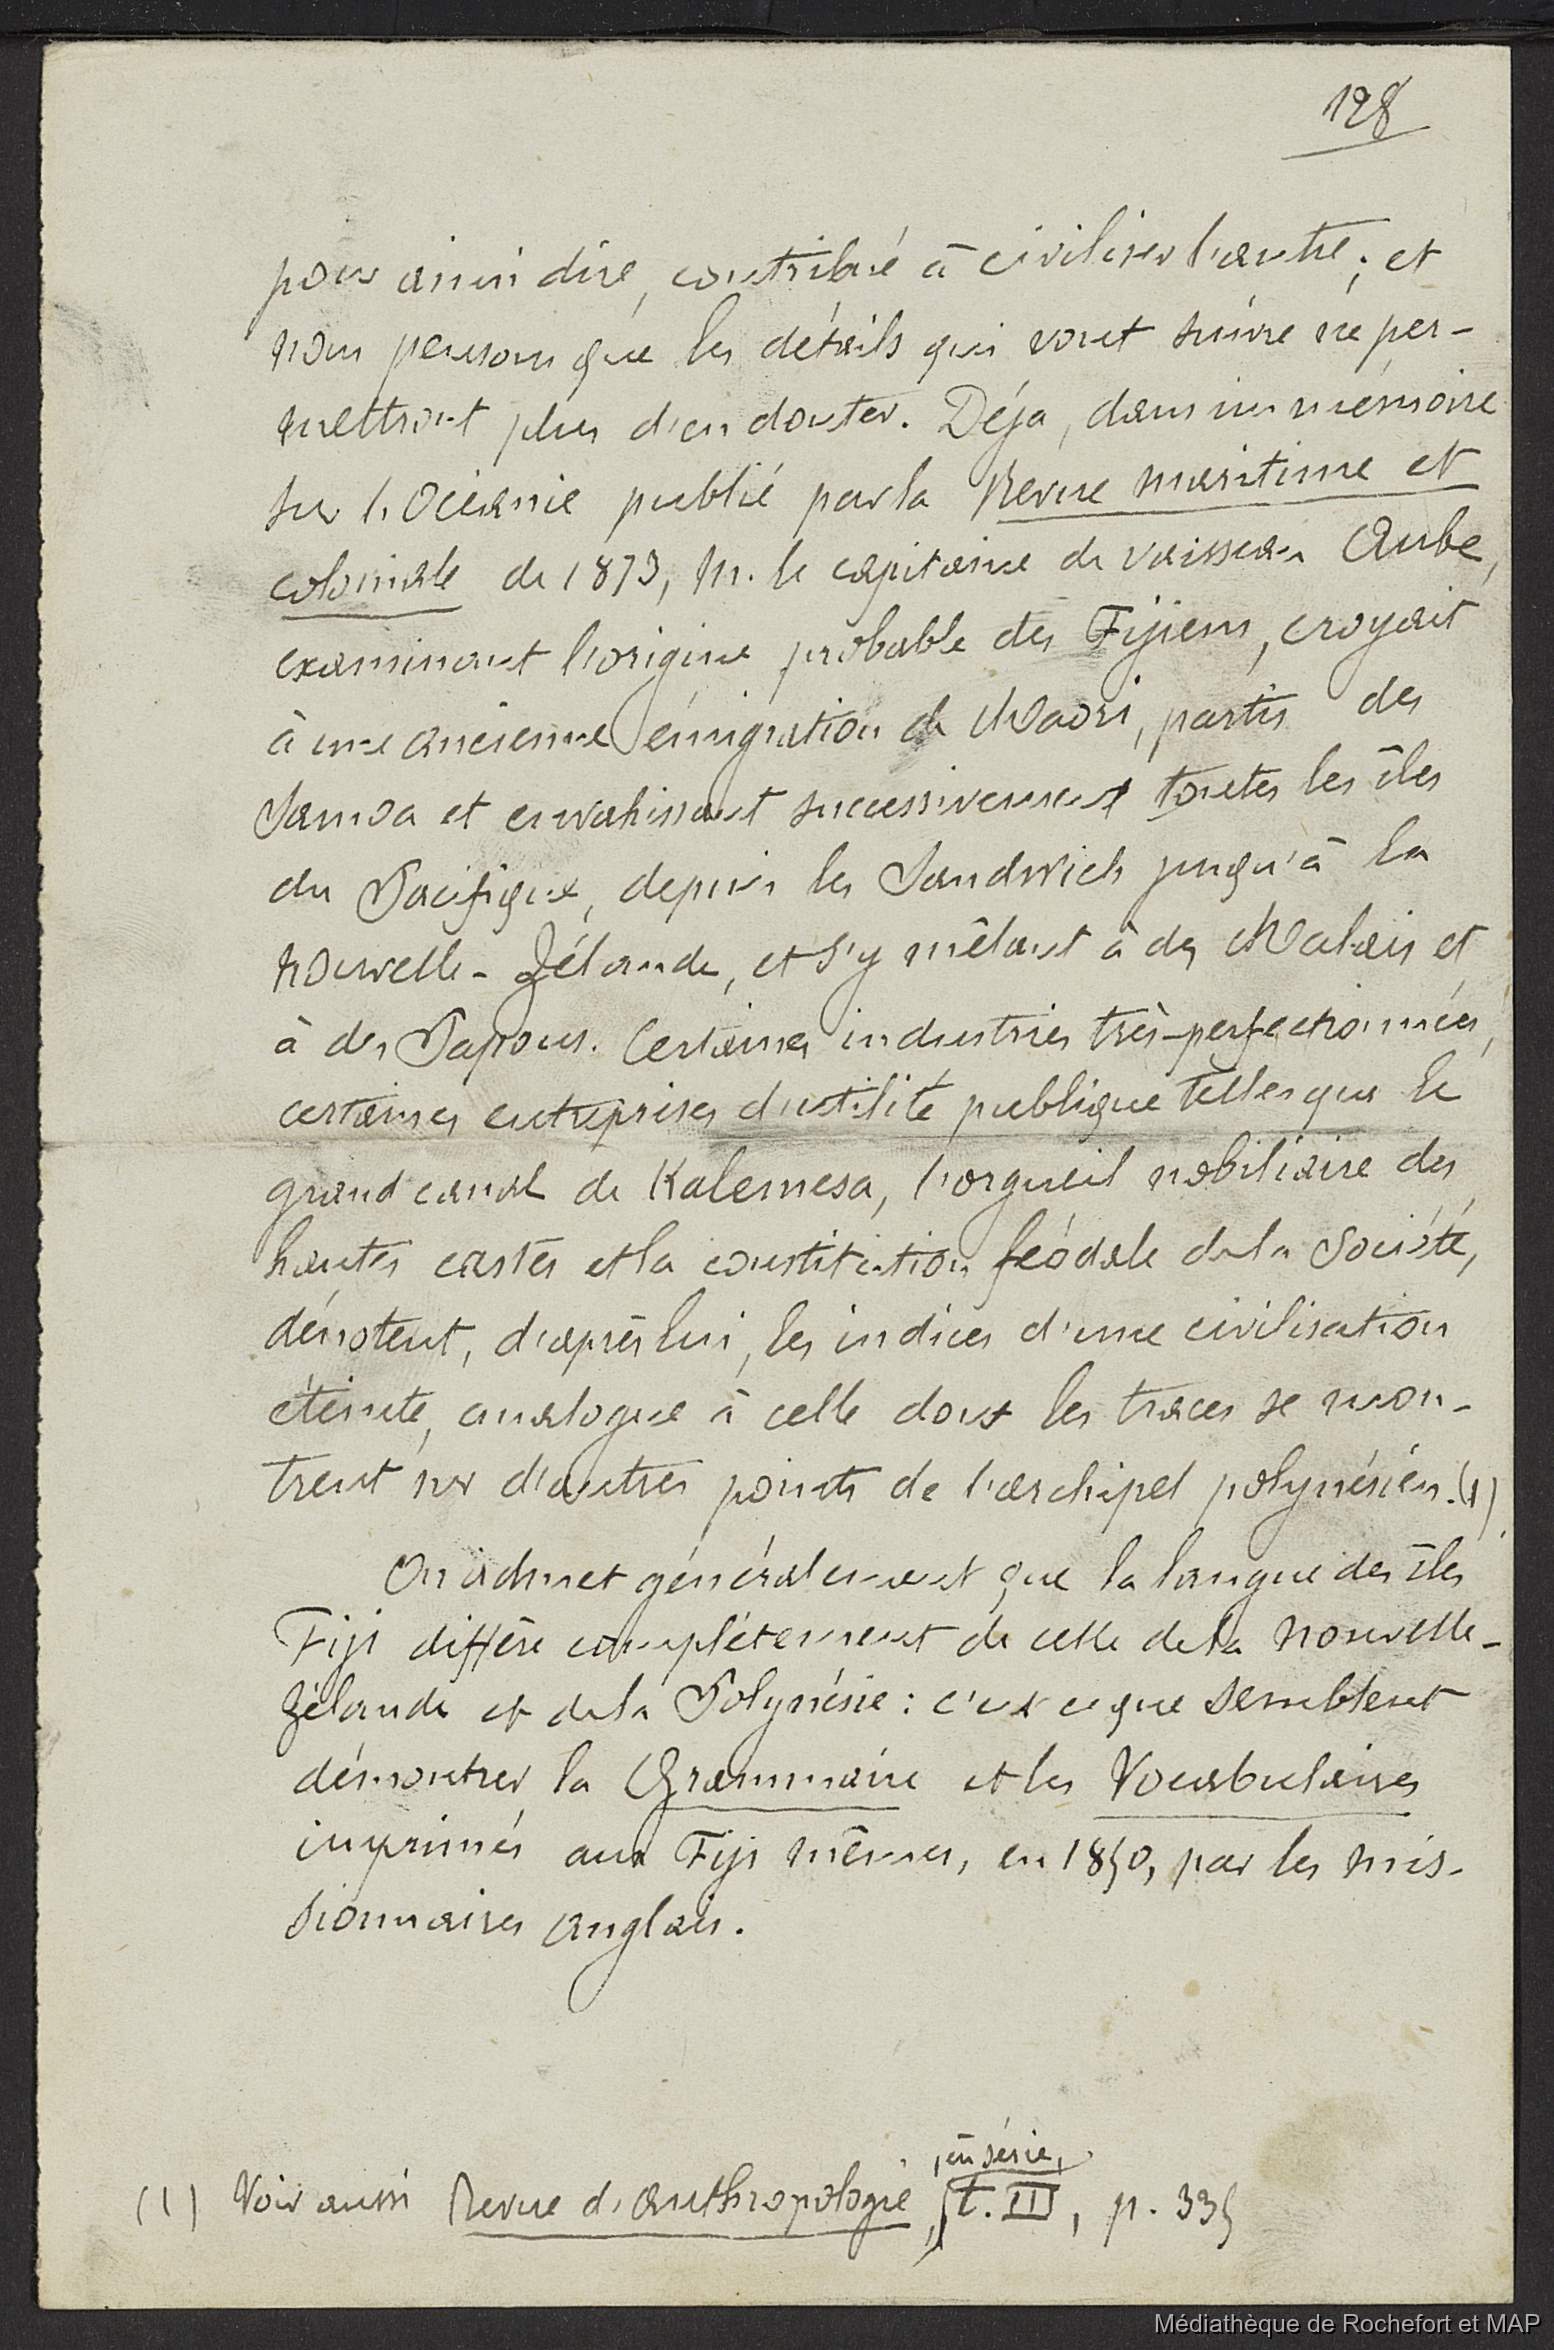 128
pour ainsi dire, contribué à civiliser l'autre; et
nous pensons que les détails qui vont suivre ne per-
mettront plus d'en douter. Déja, dans un mémoire
sur l'Océanie publié par la Revue maritime et
coloniale de 1873, M. le capitaine de vaisseau Aube,
examinant l'origine probable des Fijiens, croyait
à une ancienne émigration de Maori, partis des
Samoa et envahissant successivement toutes les îles
du Pacifique, depuis les Sandwich jusqu'à la
Nouvelle-Zélande, et s'y mêlant à des Malais et
à des Papous. Certaines industries très-perfectionnées,
certaines entreprises d'utilité publique telles que le
grand canal de Kalemesa, l'orgueil nobiliaire des
hautes castes et la constitution féodale de la Société,
dénotent, d'après lui, les indices d'une civilisation
éteinte, analogue à celle dont les traces se mon-
trent sur d'autres points de l'archipel polynésien.(1)
On admet généralement que la langue des îles
Fiji diffère complétement de celle de la Nouvelle-
Zélande et de la Polynésie: c'est ce que semblent
démontrer la Grammaire et les Vocabulaires
imprimés aux Fiji mêmes, en 1850, par les mis-
sionnaires anglais.
(1) Voir aussi Revue d'Anthropologie, série, t. III, p. 335
Médiathèque de Rochefort et MAP